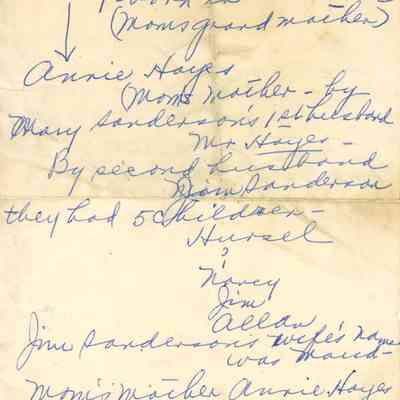 (Mom's grandmother)
Annie Hayes
(Mom's Mother - by
Mary Sanderson's 1st husband
Mr Hayes -
By second husband
Sanderson
they had 5 Children -
Hursel
?
Nancy
Jim
Allan
Jim Sanderson's wife's name
was Maud -
Mom's Mother Annie Hayes